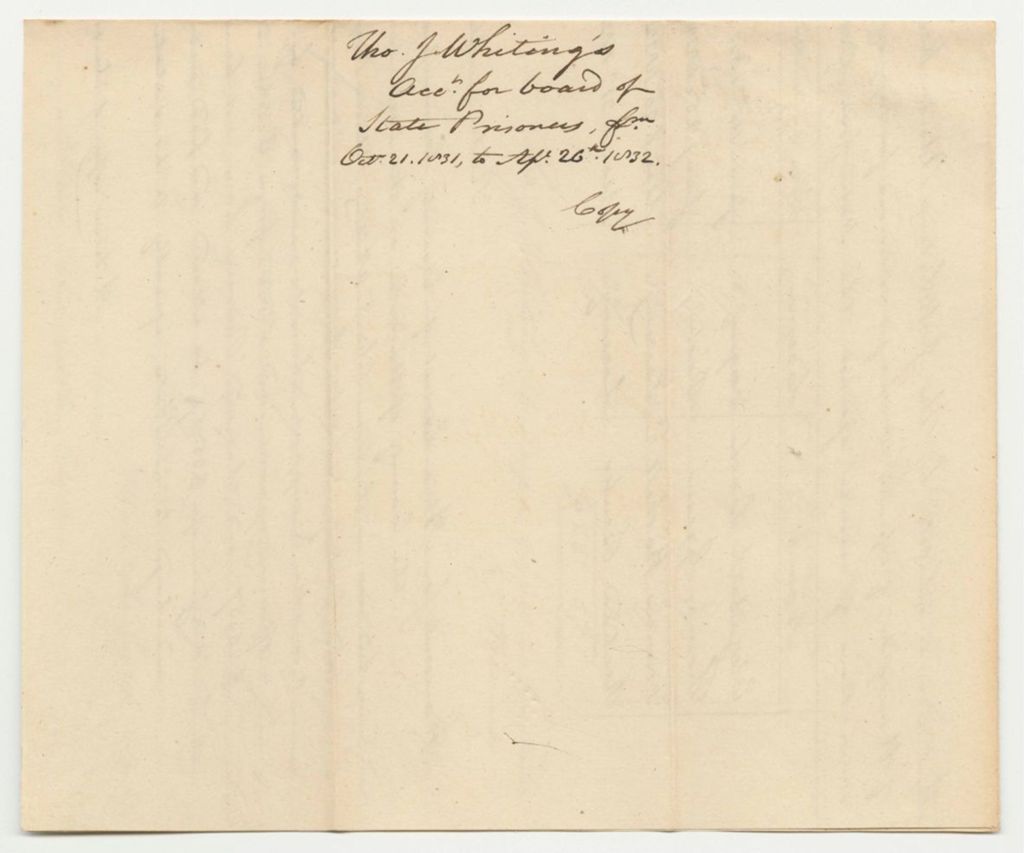 Tho. J. Whiting's
Acct. for board of
State Prisoners, fm
Oct. 21. 1831, to Apl. 26th. 1832.
Copy